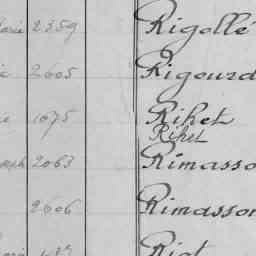 2359 Rigollé
2605 Rigourd
1675 Rihet
Rihet
2063 Rimasso
2606 Rimasson
Riot